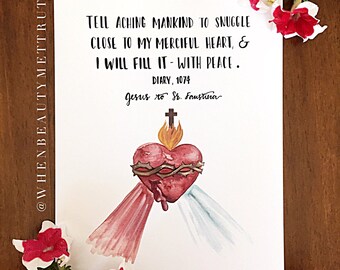 TELL ACHING MANKIND TO SNUGGLE
CLOSE TO MY MERCIFUL HEART, &
I WILL FILL IT - WITH PEACE.
DIARY, 1074
Jesus to St. Faustina
@WHENBEAUTYMETTRUT